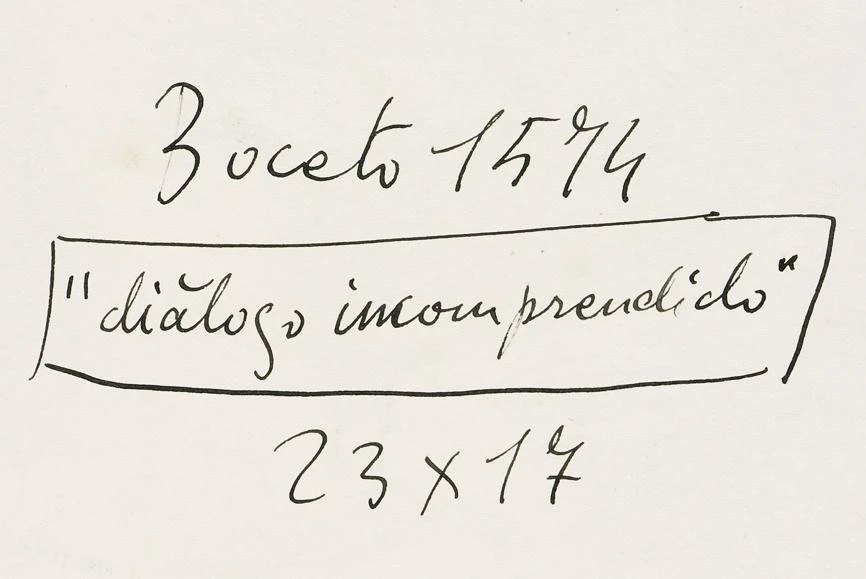 Boceto 1574
"diálogo incomprendido"
23 x 17